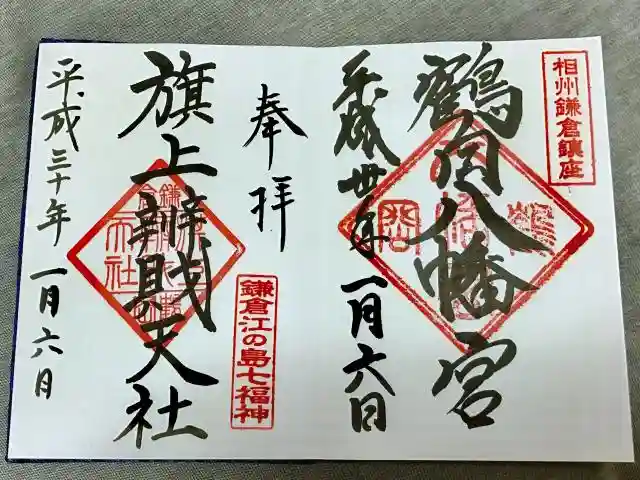 相州鎌倉鎮座
鶴岡八幡宮
平成卅年一月六日
奉拝
鎌倉江の島七福神
旗上辨財天社
平成三十年一月六日